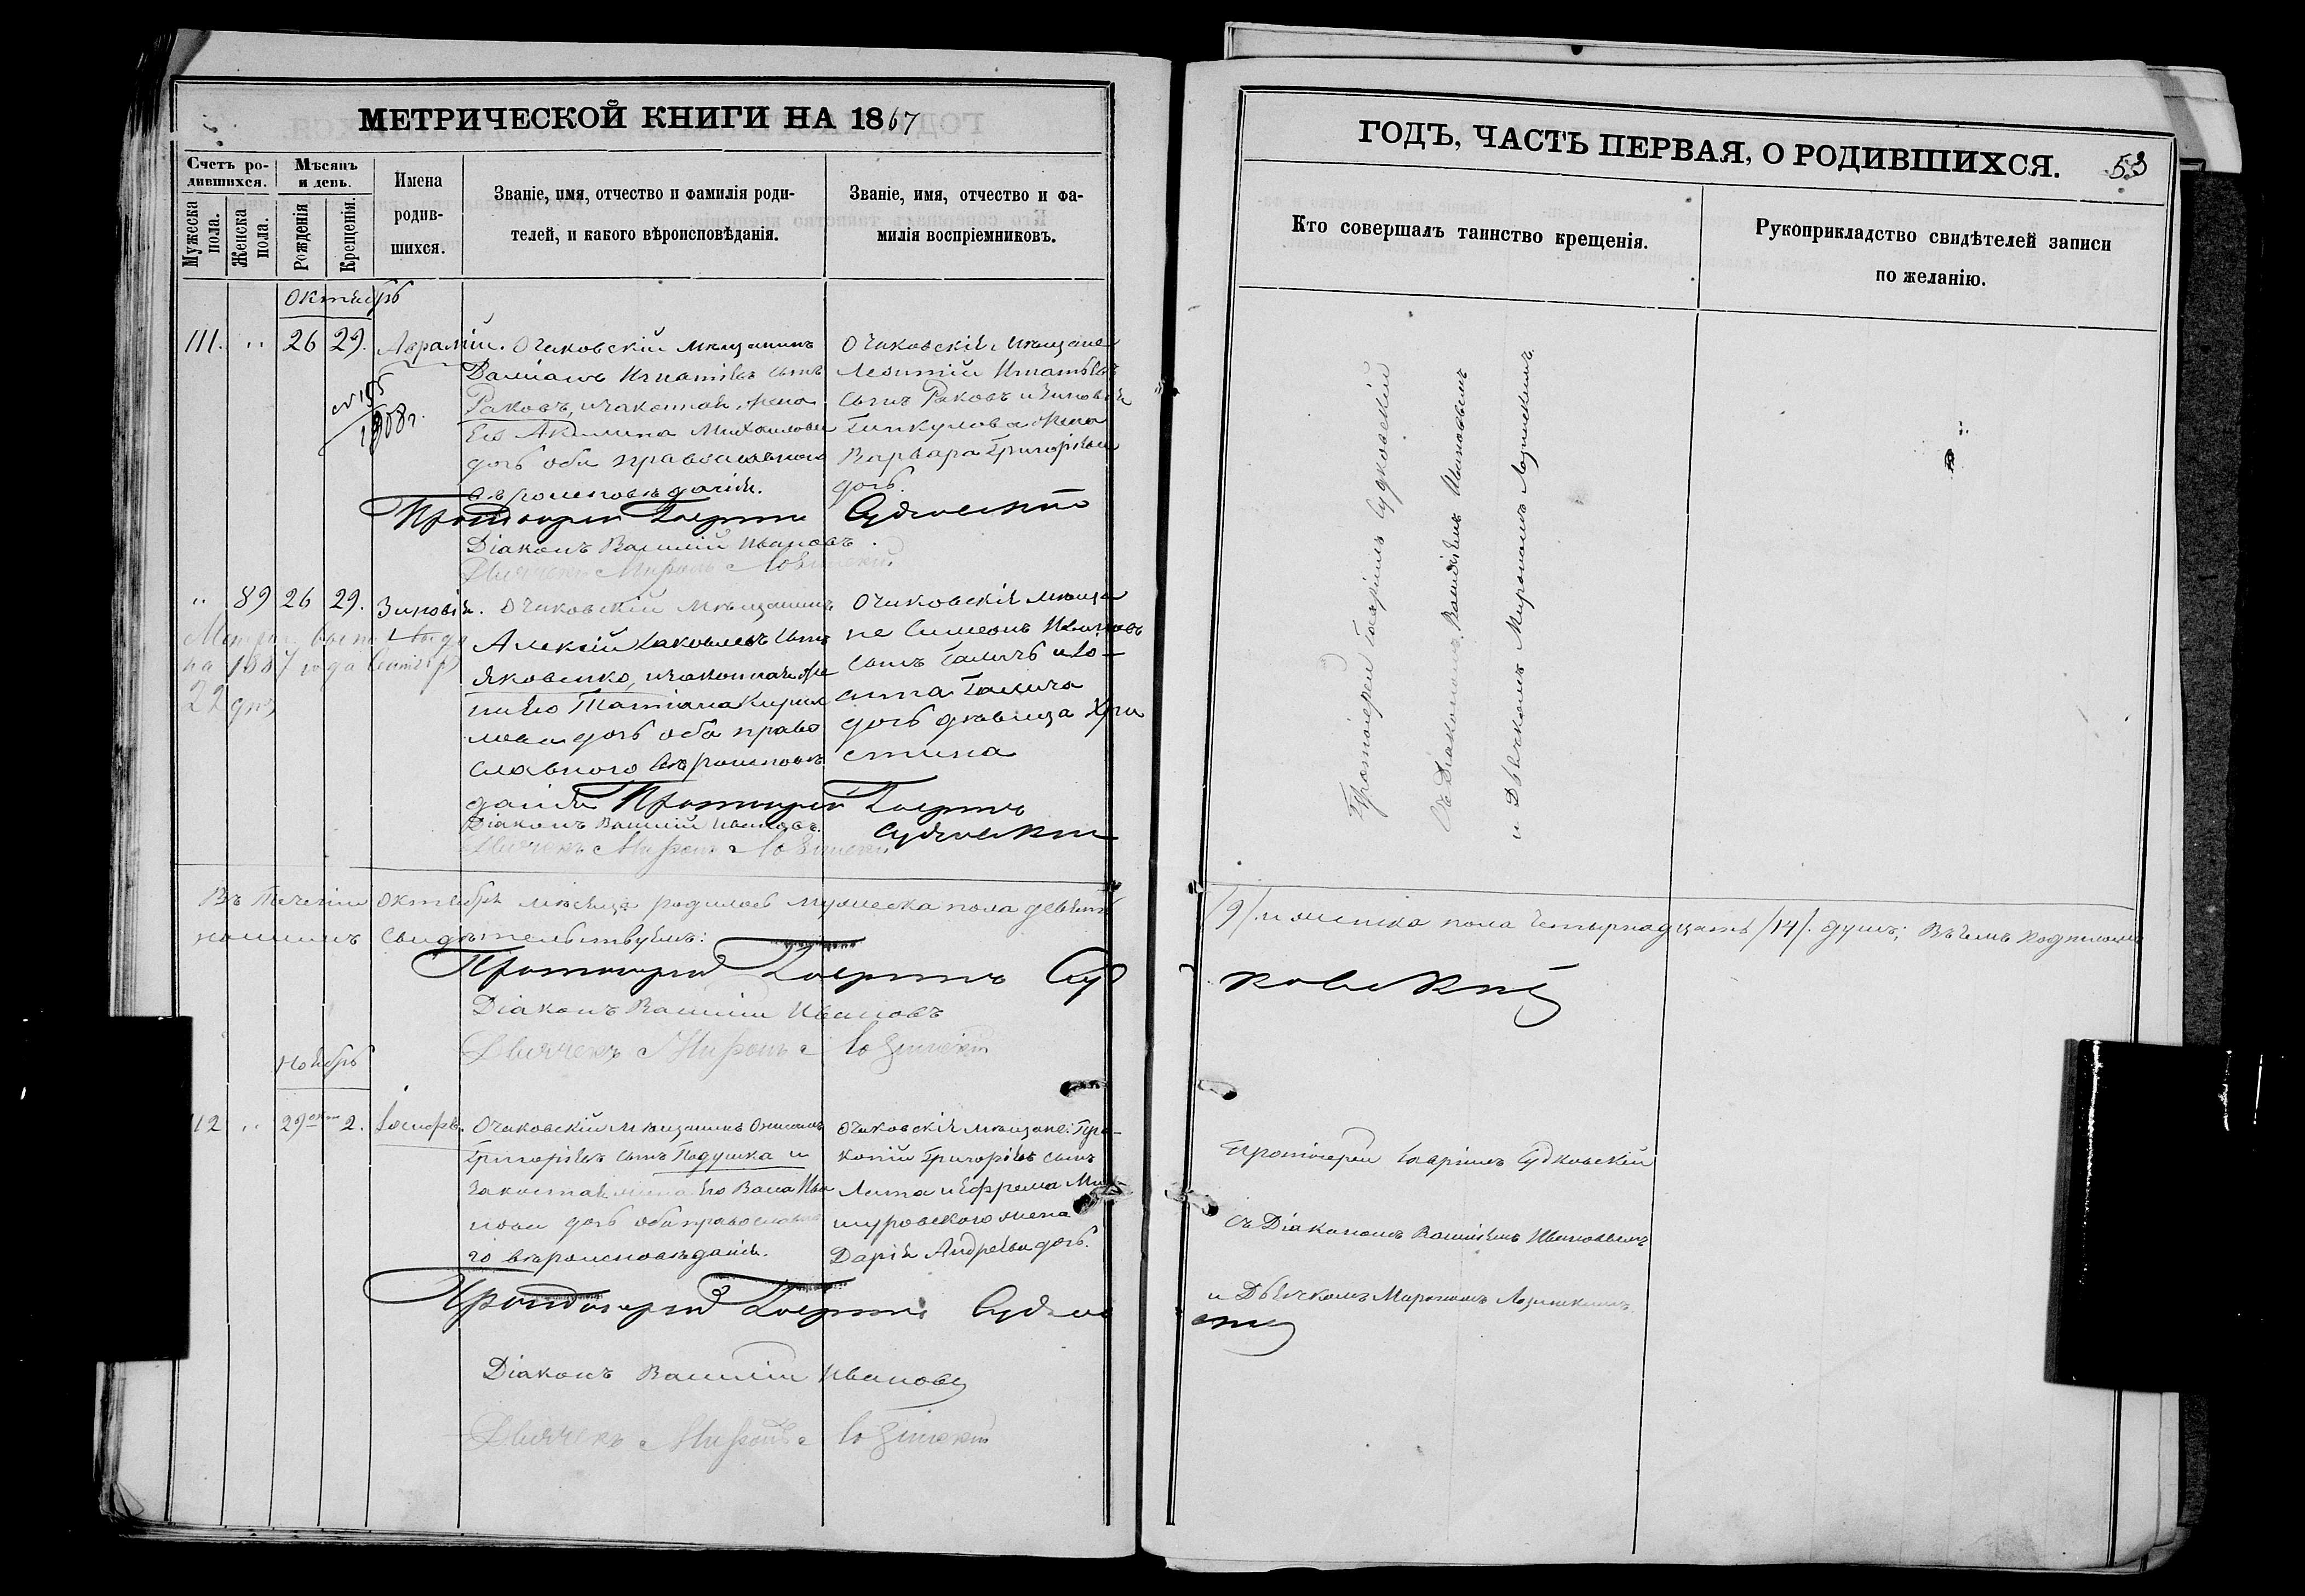 МЕТРИЧЕСКОЙ КНИГИ НА 1867
Счетъ ро-
дившихся.
Мѣсяцъ
и день.
Мужеска
пола.
Женска
пола.
Рожденія
Крещенія.
Имена
родив-
шихся.
Званіе, имя, отчество и фамилія роди-
телей, и какого вѣроисповѣданія.
Званіе, имя, отчество и фа-
милія воспріемниковъ.
Октябрь
111. " 26 29.
Очаковскій мѣщанинъ
Даміанъ Игнатіевъ сынъ
Раковъ, и законная жена
Его Акилина Михайлова
дочь оба православнаго
вѣроисповѣданія.
Очаковскія мѣщане
Леонтій Игнатьевъ
сынъ Раковъ и Зиновія
жена
Варвара Григорьева
дочь.
№ 195
1908 г.
Протоіерей Гавріилъ Судковскій
Діаконъ Василій Ивановъ.
Дьячекъ Миронъ Лозинскій
" 89 26 29. Зиновія.
Очаковскій мѣщанинъ
Алексій Іаковлевъ сынъ
Яковенко, и законная же
на Его Татіана Кирил
лова дочь оба право
славнаго вѣроисповѣ
данія
Очаковскія мѣща
не Симеонъ Ивановъ
сынъ Галичъ и Іо-
анна Галича
дочь дѣвица Хри
стина
на 1887 года
22 дня
Протоіерей Гавріилъ
Судковскій
Діаконъ Василій Ивановъ.
Дьячекъ Миронъ Лозинскій
Въ теченіи октября мѣсяца родилось мужеска пола девять
нашимъ свидѣтельствуемъ:
Протоіерей Гавріилъ Суд
Діаконъ Василій Ивановъ
Дьячекъ Миронъ Лозинскій
Ноябрь
112 " 29 окт 2. Іосифъ.
Очаковскій мѣщанинъ
Григоріевъ сынъ Подушка и
законная жена Его Васса Ива
нова дочь оба православна
го вѣроисповѣданія.
Очаковскія мѣщане: Про-
копій Григоріевъ сынъ
Липа и Ефрема
жена
Дарія Андреева дочь.
Протоіерей Гавріилъ Судков
Діаконъ Василій Ивановъ
Дьячекъ Миронъ Лозинскій
ГОДЪ, ЧАСТЬ ПЕРВАЯ, О РОДИВШИХСЯ.
53
Кто совершалъ таинство крещенія.
Рукоприкладство свидѣтелей записи
по желанію.
Протоіерей Гавріилъ Судковскій
Съ Діакономъ Василіемъ Ивановымъ
и Дьячкомъ Мирономъ Лозинскимъ.
/9/ и женска пола четырнадцать /14/. душъ; въ чемъ подписомъ
ковскій
Протоіерей Гавріилъ Судковскій
съ Діакономъ Василіемъ Ивановымъ
и Дьячкомъ Мирономъ Лозинскимъ.
скій